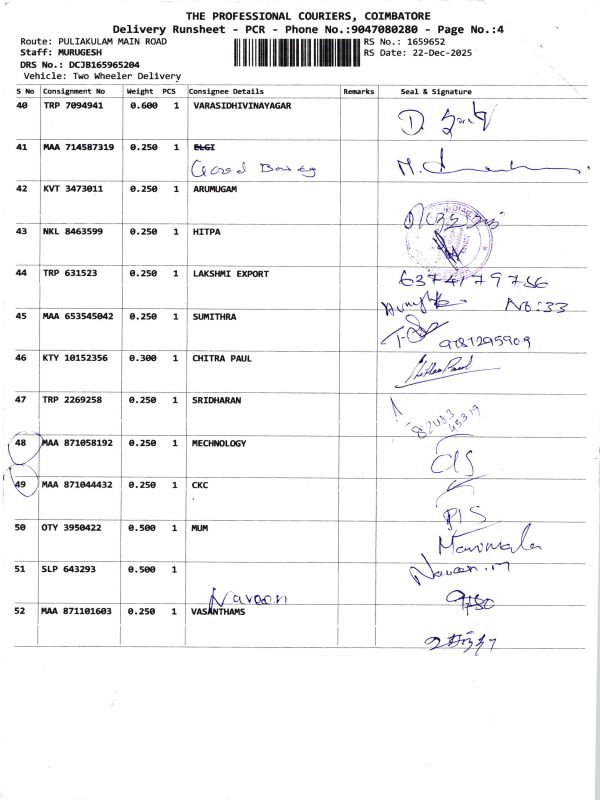 THE PROFESSIONAL COURIERS, COIMBATORE
Delivery Runsheet - PCR - Phone No.:9047080280 - Page No.:4
Route: PULIAKULAM MAIN ROAD RS No.: 1659652
Staff: MURUGESH RS Date: 22-Dec-2025
DRS No.: DCJB165965204
Vehicle: Two Wheeler Delivery
S No Consignment No Weight PCS Consignee Details Remarks Seal & Signature
40 TRP 7094941 0.600 1 VARASIDHIVINAYAGAR
41 MAA 714587319 0.250 1 ELGI
42 KVT 3473011 0.250 1 ARUMUGAM
43 NKL 8463599 0.250 1 HITPA
44 TRP 631523 0.250 1 LAKSHMI EXPORT 6374179756
No:33
45 MAA 653545042 0.250 1 SUMITHRA
9787295909
46 KTY 10152356 0.300 1 CHITRA PAUL
47 TRP 2269258 0.250 1 SRIDHARAN
82483
45319
48 MAA 871058192 0.250 1 MECHNOLOGY
49 MAA 871044432 0.250 1 CKC
50 OTY 3950422 0.500 1 MUM
Manimala
51 SLP 643293 0.500 1 Naveen.M
Naveen
52 MAA 871101603 0.250 1 VASANTHAMS